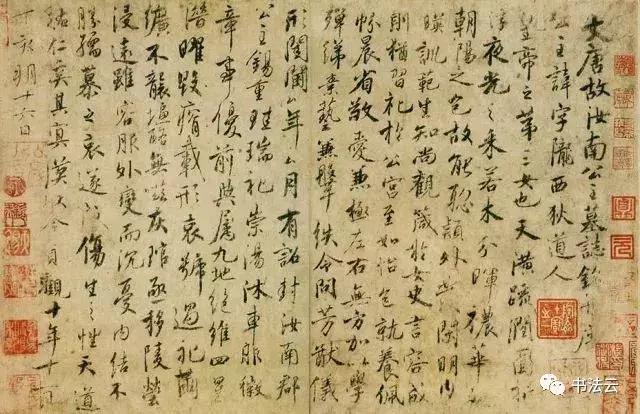 大唐故汝南公主墓誌銘并序
公主諱字隴西狄道人
皇帝之第三女也天潢疏潤圓折
浮夜光之采若木分暉穠華
朝陽之色故能聰穎外發閑明內
暎訓範生知尚觀箴於女史言容成
則猶習礼於公宮至如怡色就養佩
帉晨省敬愛兼極左右無方加以學
殫綈素藝兼鞶紩令問芳猷儀
形閨閫厶年厶月有詔封汝南郡
公主錫重珪瑞礼崇湯沐車服徽
章事優前典屬九地絕維四星
潛曜毀瘠載形哀號過礼繭
纊不襲塩酪無嗞灰琯亟移陵塋
浸遠雖容服外變而沉憂內結不
勝孺慕之哀遂成傷生之性天道
祐仁奚其冥漠以今貞觀十年十一月
丁亥朔十六日
书法云